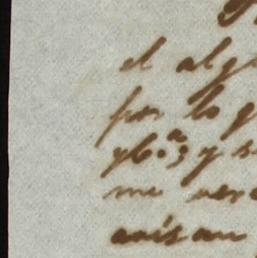 el alg
por lo q
y 6.a 3 y s
me ver
avisan